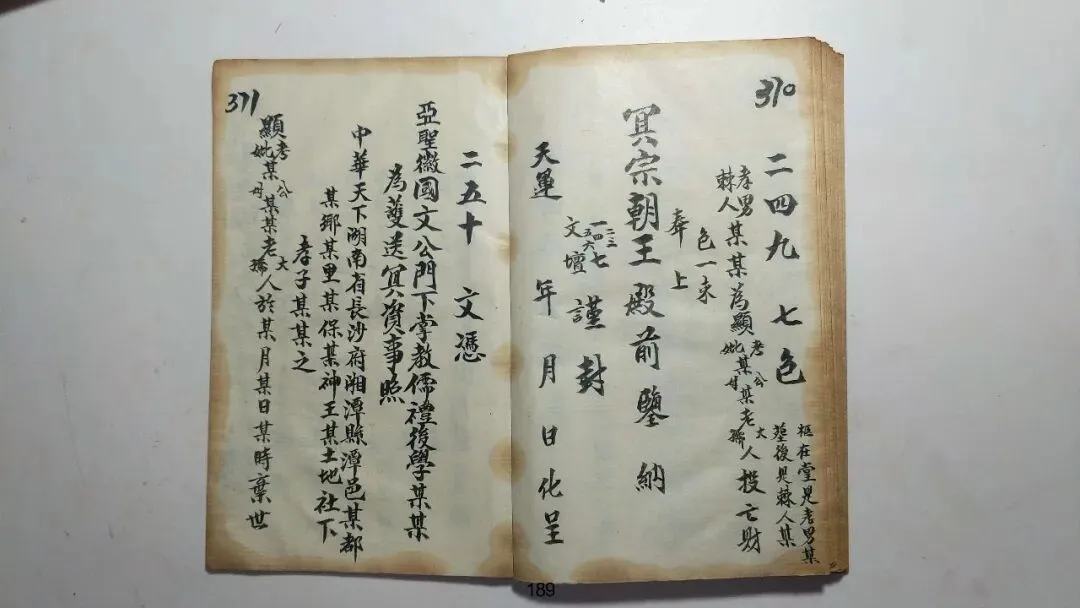 370
二四九 七色
柩在堂是孝男某
塟後是棘人某
孝男棘人某某為顯考妣某公母某老大孺人投亡財
色一束
奉上
冥宗朝王殿前鑒納
一二三四五六七
文壇謹封
天運 年 月 日化呈
371
二五十 文憑
亞聖徽國文公門下掌教儒禮後學某某
為薦送冥資事照
中華天下湖南省長沙府湘潭縣潭邑某都
某鄉某里某保某神王某土地社下
孝子某某之
顯考妣某公母某某老大孺人於某月某日某時棄世
189